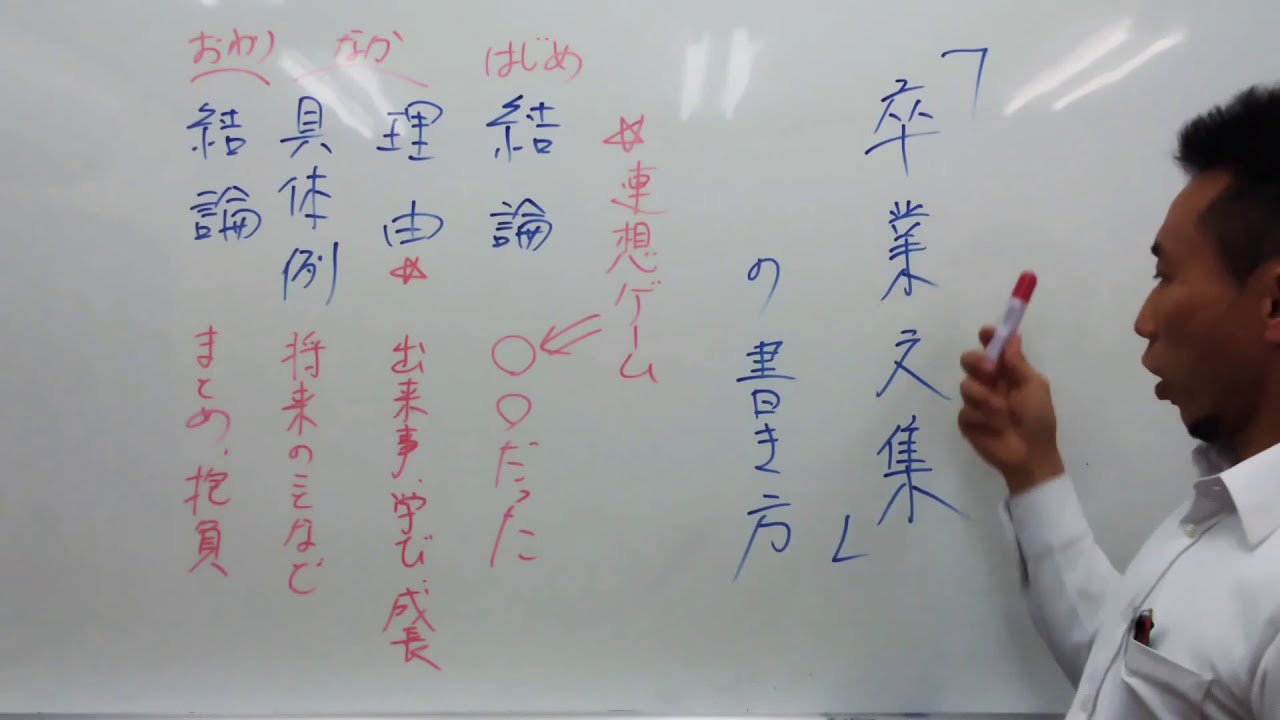 「卒業文集」
の書き方
☆連想ゲーム
はじめ
結論
○○だった
なか
理由
☆出来事、学び 成長
具体例
将来のことなど
おわり
結論
まとめ、抱負